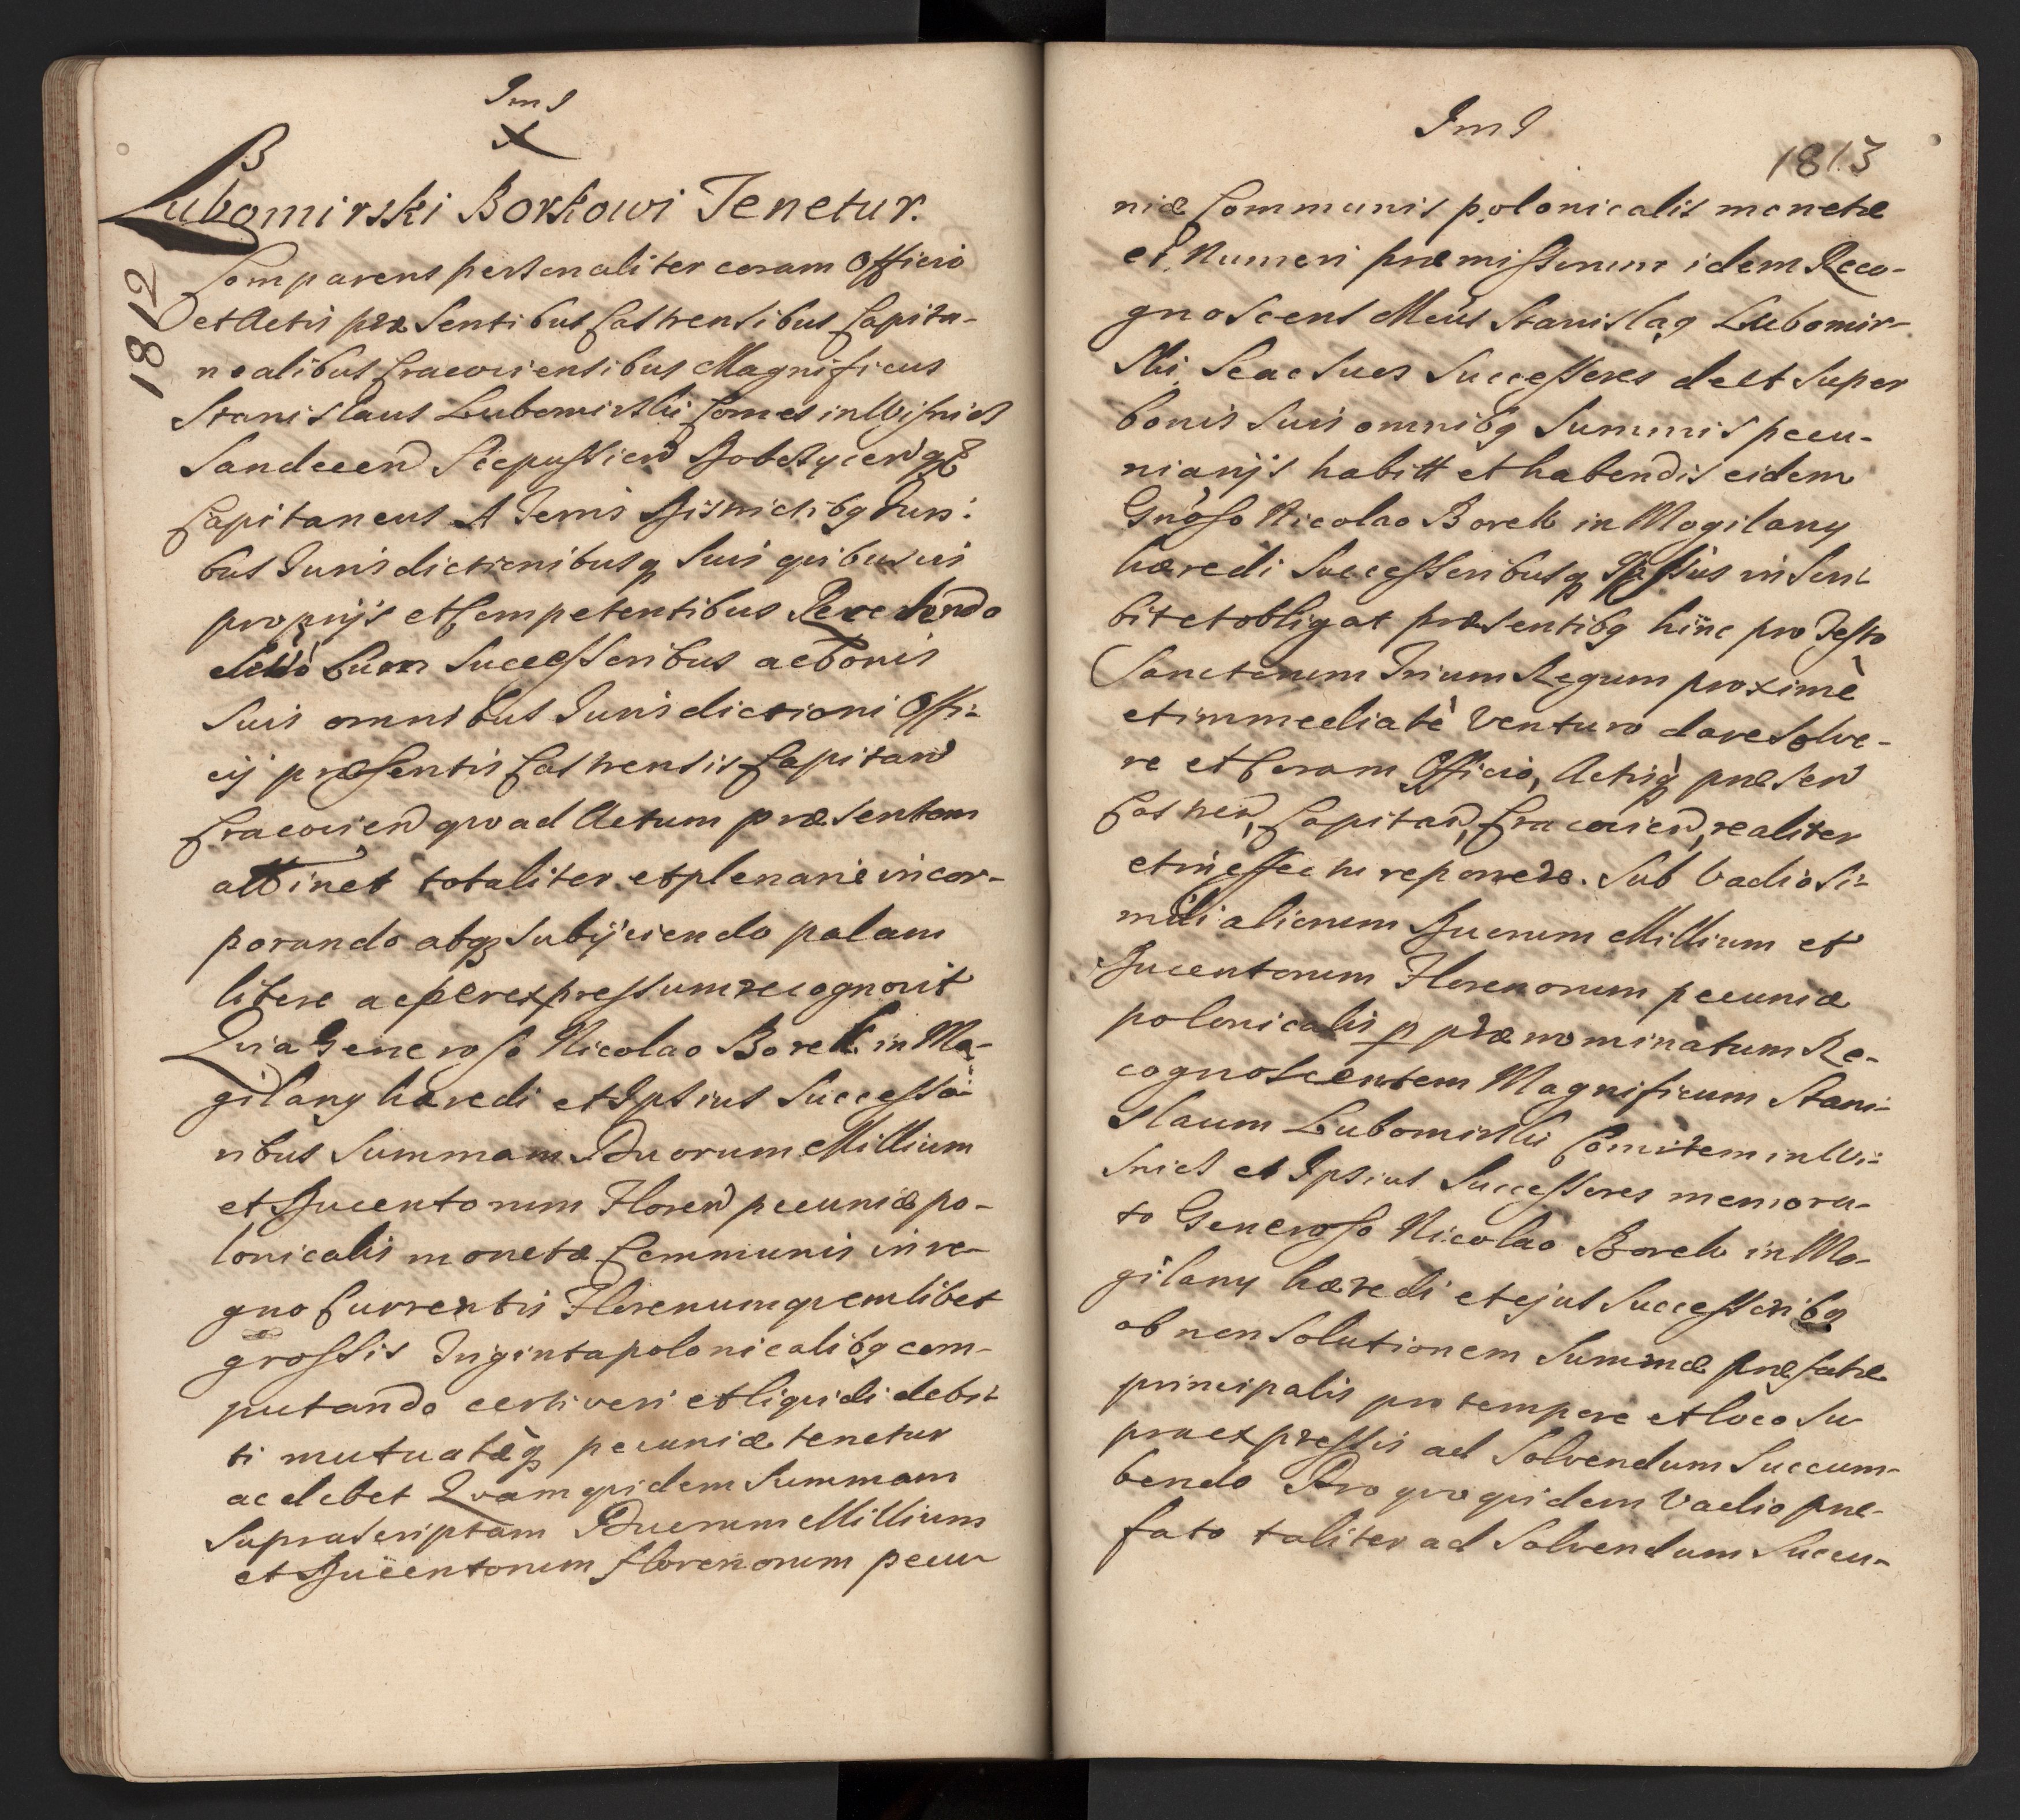 Lubomirski Borkowi Tenetur.
1812
Comparens personaliter coram Officio
et Actis præsentibus Castrensibus Capita-
nealibus Cracoviensibus Magnificus
Stanislaus Lubomirski Comes in Wisnicz
Sandecen Scepussien Dobczycen
Capitaneus A Terris Districtibq Juri:
bus Jurisdictionibusq suis quibusvis
proprijs et Competentibus Recedendo
cum Successoribus ac bonis
suis omnibus Jurisdictioni Offi-
cij præsentis Castrensis Capitan
Cracovien quo ad Actum præsentem
attinet totaliter et plenarie incor-
porando atq subijciendo palam
libere ac per expressum recognovit
Quia Generoso Nicolao Borek in Mo-
gilany hæredi et Ipsius Successo-
ribus Summam Duorum Millium
et Ducentorum Floren pecuniæ po-
lonicalis monetæ Communis in re-
gno Currentis Florenum quemlibet
grossis Triginta polonicalibq com-
putando certi veri et liquidi debi-
ti mutuatæq pecuniæ tenetur
ac debet Quam quidem Summam
supra scriptam Duorum Millium
et Ducentorum florenorum pecu-
1813
niæ Communis polonicalis monetæ
et Numeri præmissorum idem Reco-
gnoscens Mcus Stanislaq Lubomir-
ski Se ac suos Successores de et super
bonis suis omnibq Summis pecu-
niarijs habitt et habendis eidem
Gnoso Nicolao Borek in Mogilany
hæredi Successoribusq Ipsius inscri-
bit et obligat præsentibq hinc pro Festo
Sanctorum Trium Regum proximè
et immediatè venturo dare solve-
re et Coram Officio, Actisq præsen
Castren, Capitan, Cracovien, realiter
et in effectu reponere. Sub Vadio si-
mili aliorum Duorum Millium et
Ducentorum Florenorum pecuniæ
polonicalis p prænominatum Re-
cognoscentem Magnificum Stani-
slaum Lubomirski Comitem in Wi-
snicz et Ipsius Successores memora-
to Generoso Nicolao Borek in Mo-
gilany hæredi et ejus Successoribq
ob non solutionem Summæ præfatæ
principalis pro tempore et loco su-
praexpressis ad Solvendum Succum-
bendo Pro quo quidem Vadio præ-
fato taliter ad Solvendum Succu-